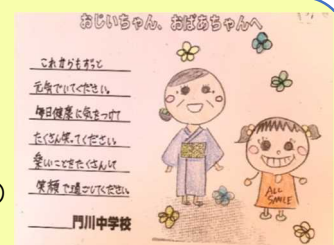 おじいちゃん、おばあちゃんへ
これからもずっと
元気でいてください。
毎日健康に気をつけて
たくさん笑ってください。
楽しいことをたくさんして
笑顔で過ごしてください。
門川中学校
ALL
SMILE